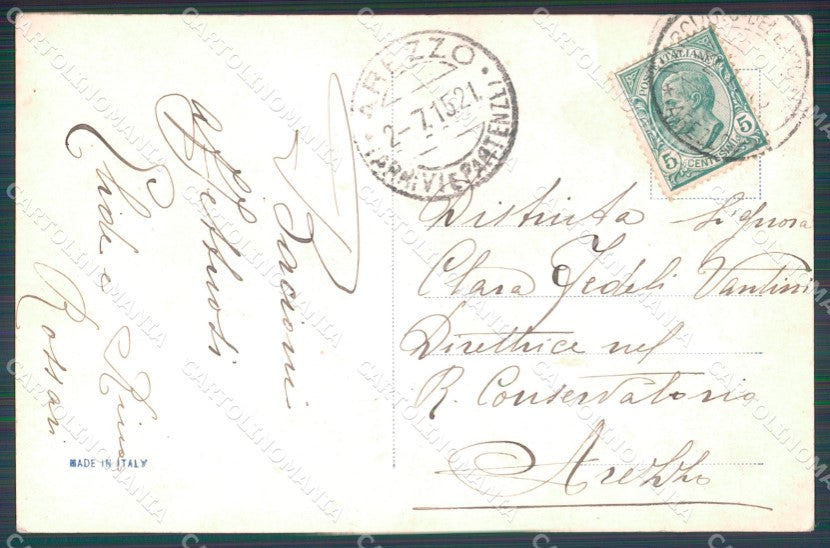 Bacioni
affettuosi
Rossari
MADE IN ITALY
AREZZO
2-7.15.21
(ARRIVI E PARTENZE)
POSTE ITALIANE
5 CENTESIMI 5
Distinta Signora
Clara Fedeli Vantini
Direttrice nel
R. Conservatorio
Arezzo
CARTOLINOMANIA